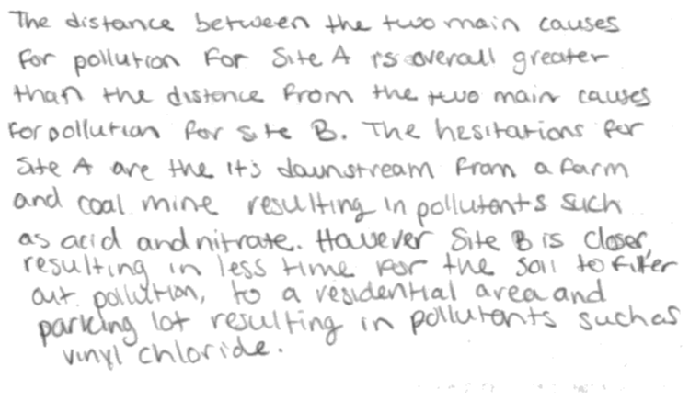 The distance between the two main causes
for pollution for Site A is overall greater
than the distance from the two main causes
for pollution for Site B. The hesitations for
Site A are the it's downstream from a farm
and coal mine resulting in pollutents such
as acid and nitrate. However Site B is closer,
resulting in less time for the soil to filter
out pollution, to a residential area and
parking lot resulting in pollutants such as
vinyl chloride.